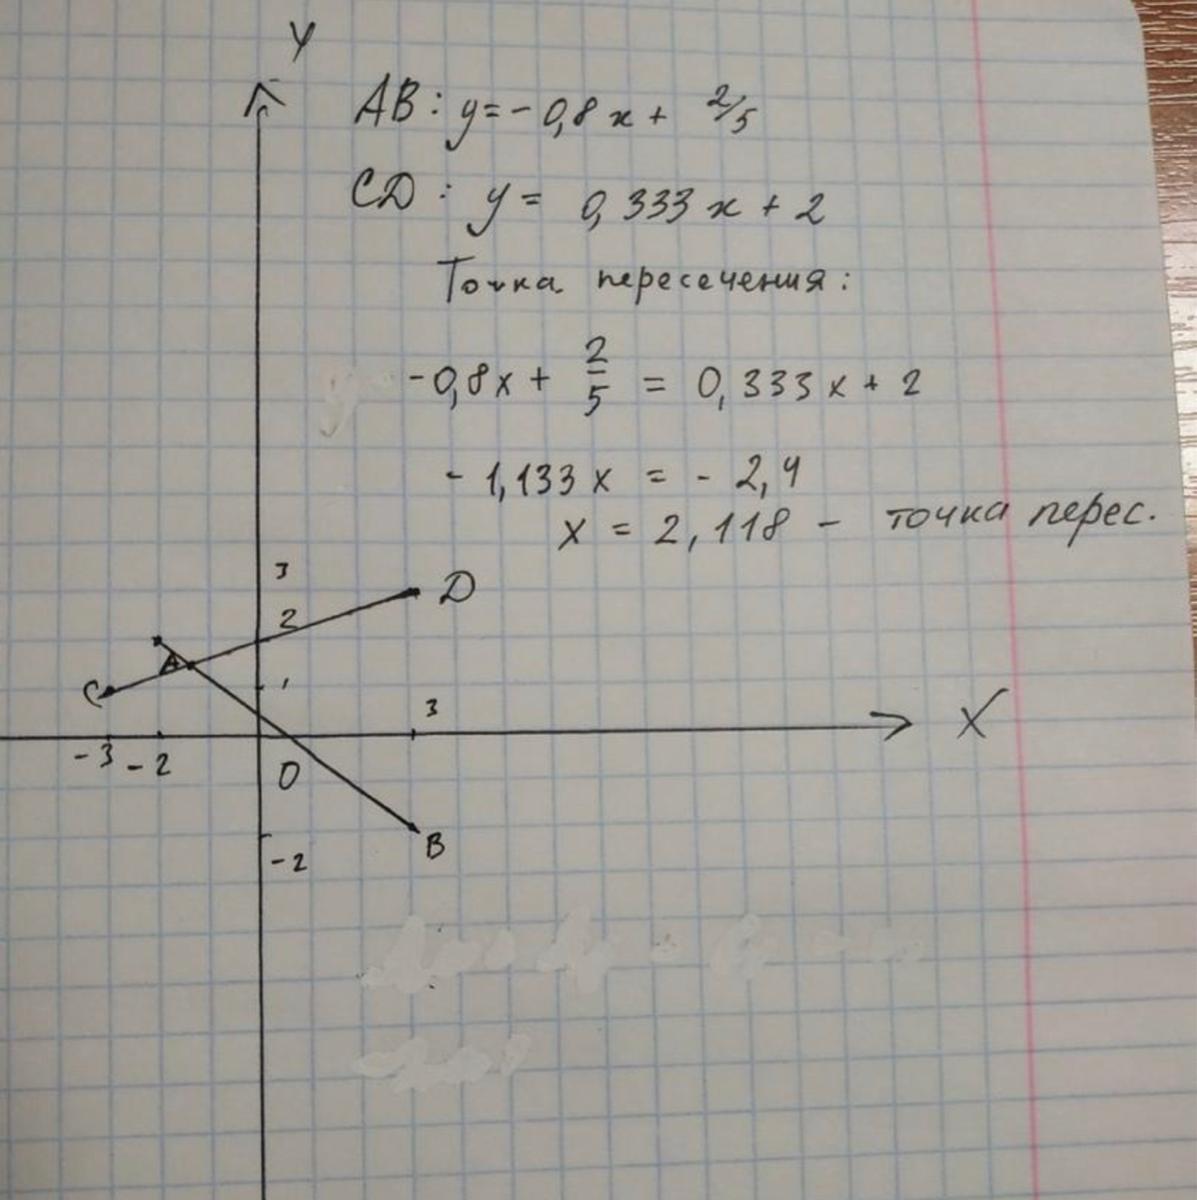 Y
AB: y = -0,8x + 2/5
CD: y = 0,333x + 2
Точка пересечения:
-0,8x + 2/5 = 0,333x + 2
-1,133x = -2,4
x = 2,118 - точка перес.
3
D
2
A
C
1
3
X
-3 -2
0
B
-2